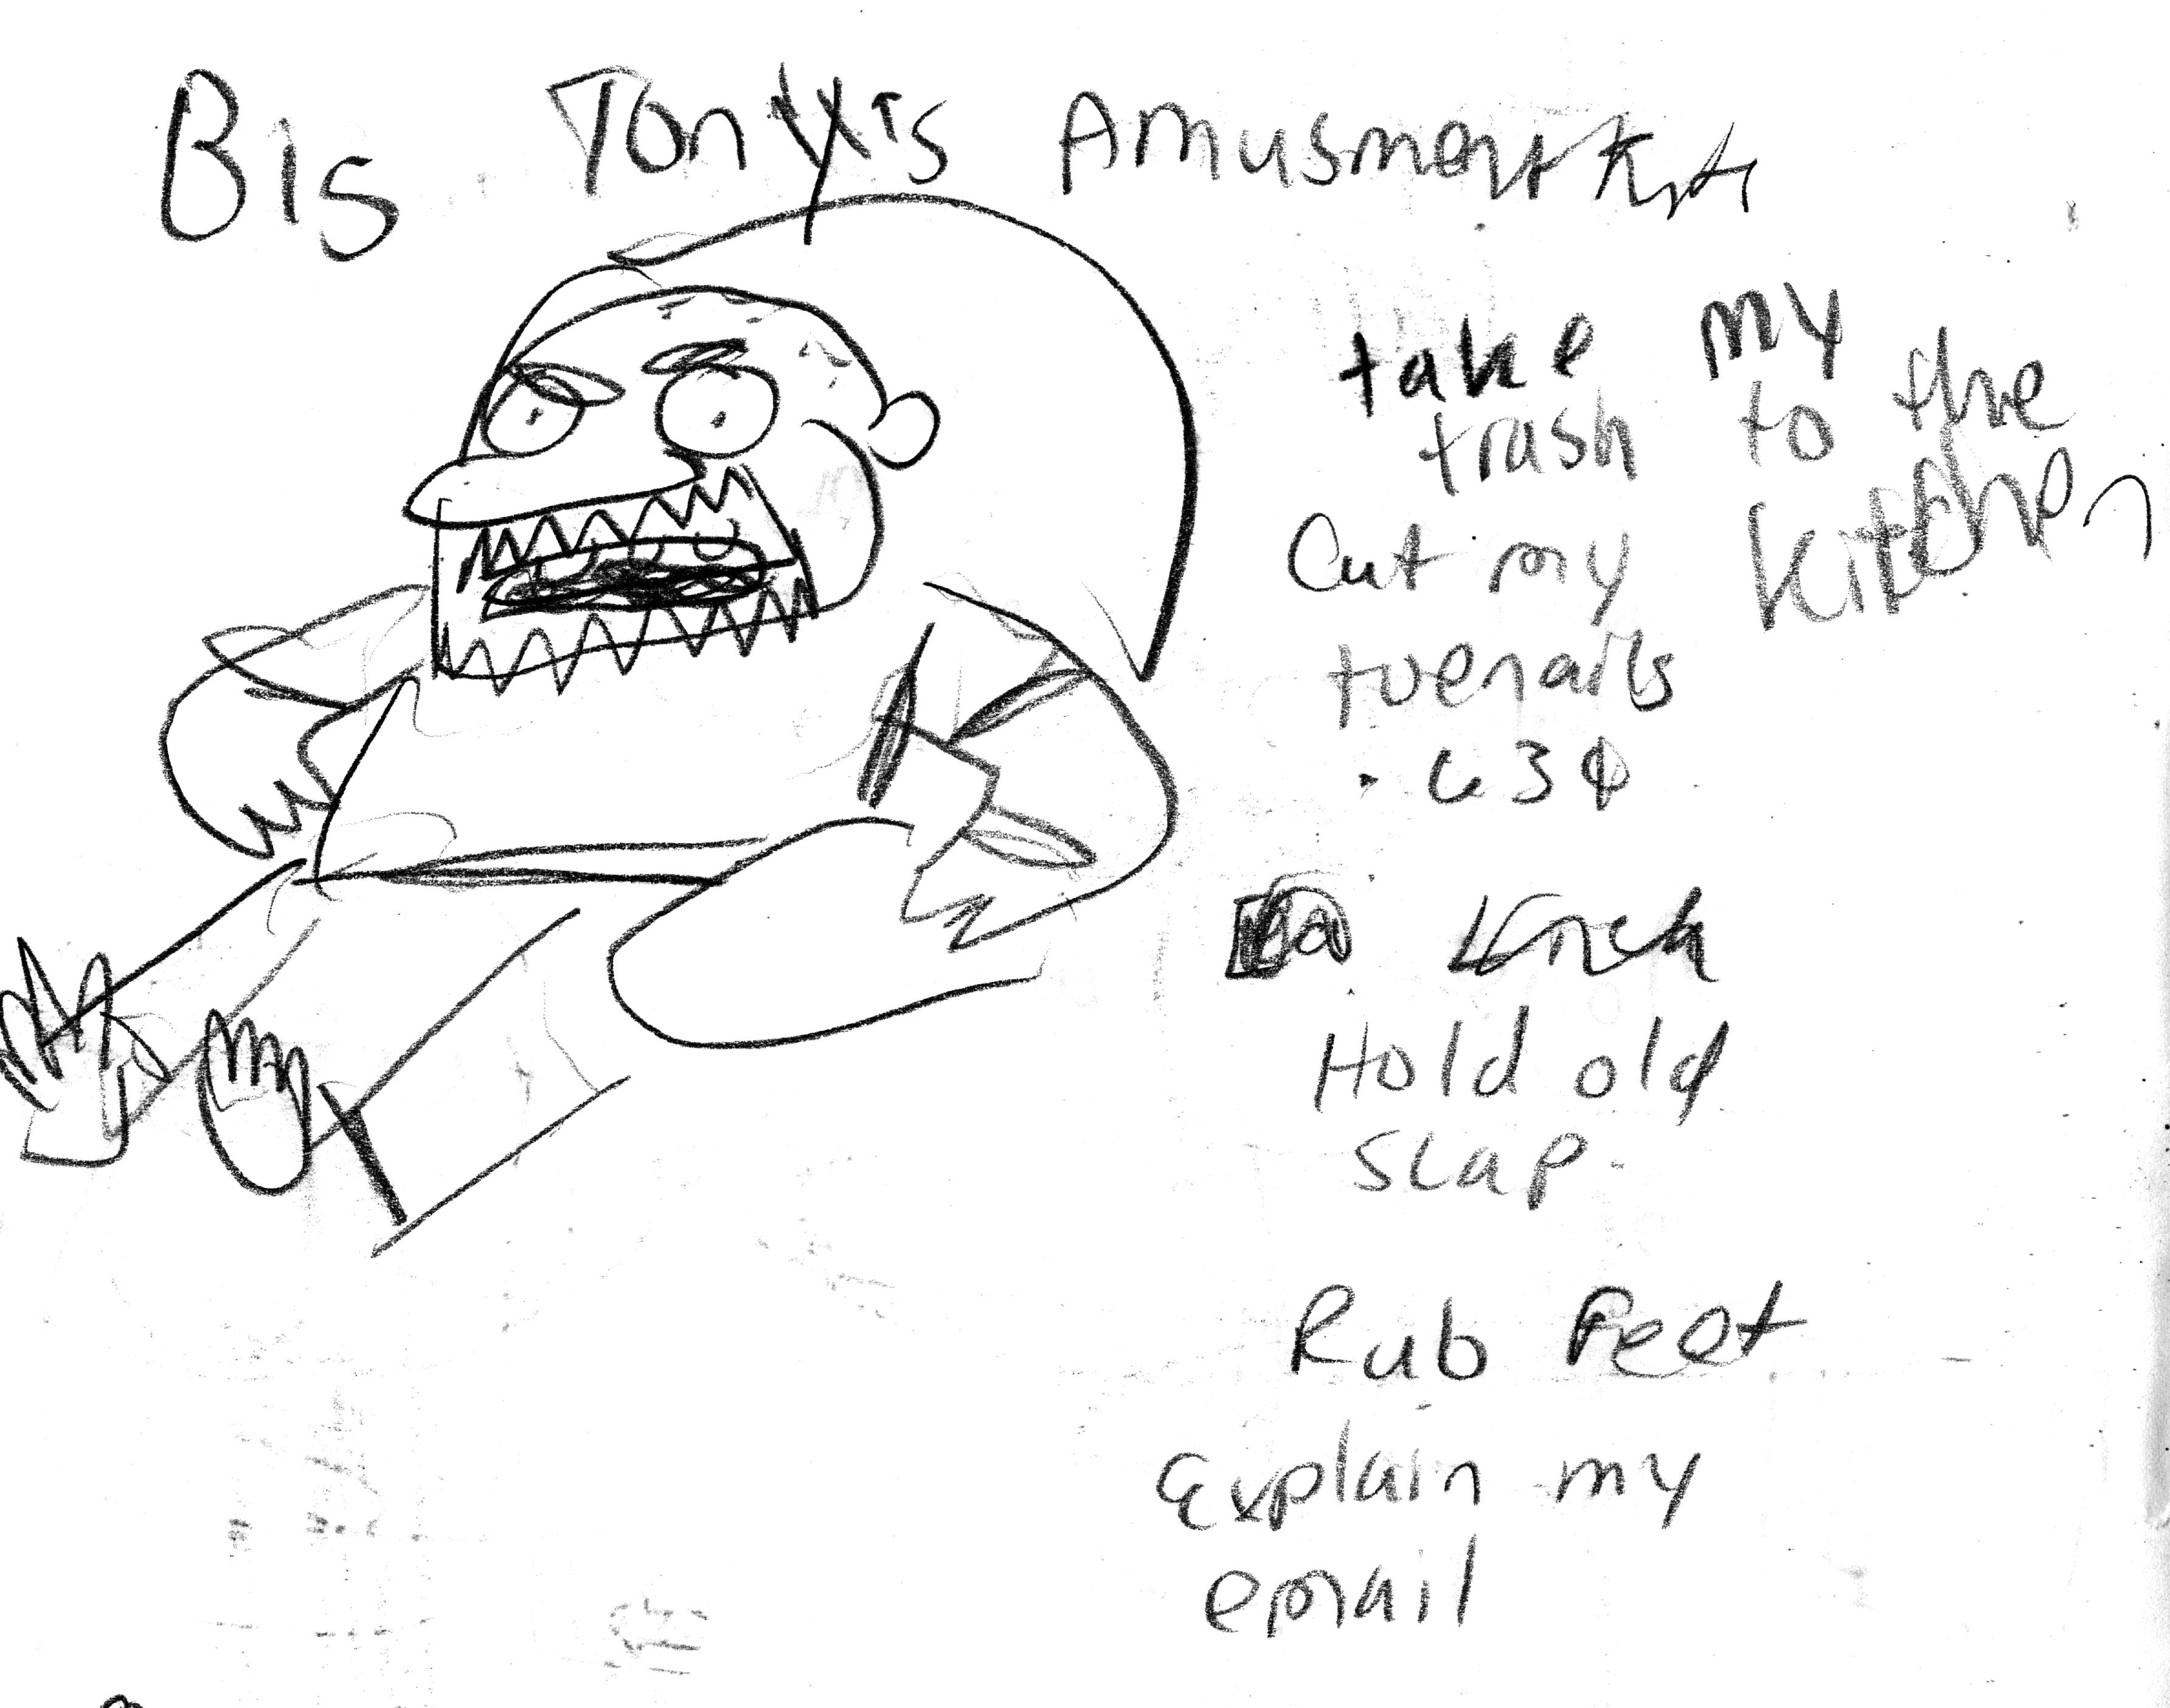 Big Tony's Amusment
take my
trash to the
kitchen
Cut my
toenails
Hold old
slap
Rub Feet
Explain my
email